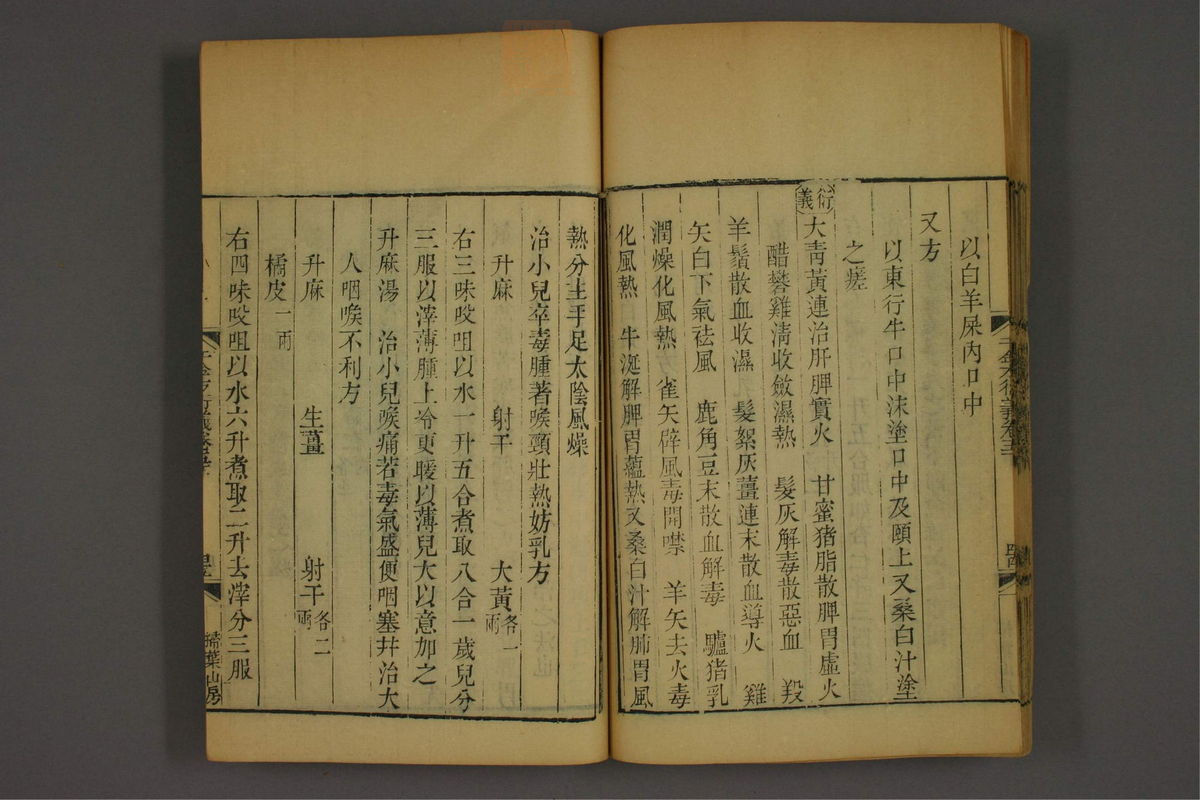 以白羊屎內口中
又方
以東行牛口中沫塗口中及頤上又桑白汁塗
之瘥
衍義
大青黃連治肝脾實火　甘蜜猪脂散脾胃虛火
醋礬雞清收斂濕熱　髮灰解毒散惡血　羖
羊鬚散血收濕　髮絮灰薑連末散血導火　雞
矢白下氣祛風　鹿角豆末散血解毒　驢猪乳
潤燥化風熱　雀矢辟風毒開噤　羊矢去火毒
化風熱　牛涎解脾胃蘊熱又桑白汁解肺胃風
熱分主手足太陰風燥
治小兒卒毒腫著喉頸壯熱妨乳方
升麻　射干　大黃各一兩
右三味㕮咀以水一升五合煮取八合一歲兒分
三服以滓薄腫上冷更暖以薄兒大以意加之
升麻湯　治小兒喉痛若毒氣盛便咽塞幷治大
人咽喉不利方
升麻　生薑　射干各二兩
橘皮一兩
右四味㕮咀以水六升煮取二升去滓分三服
掃葉山房